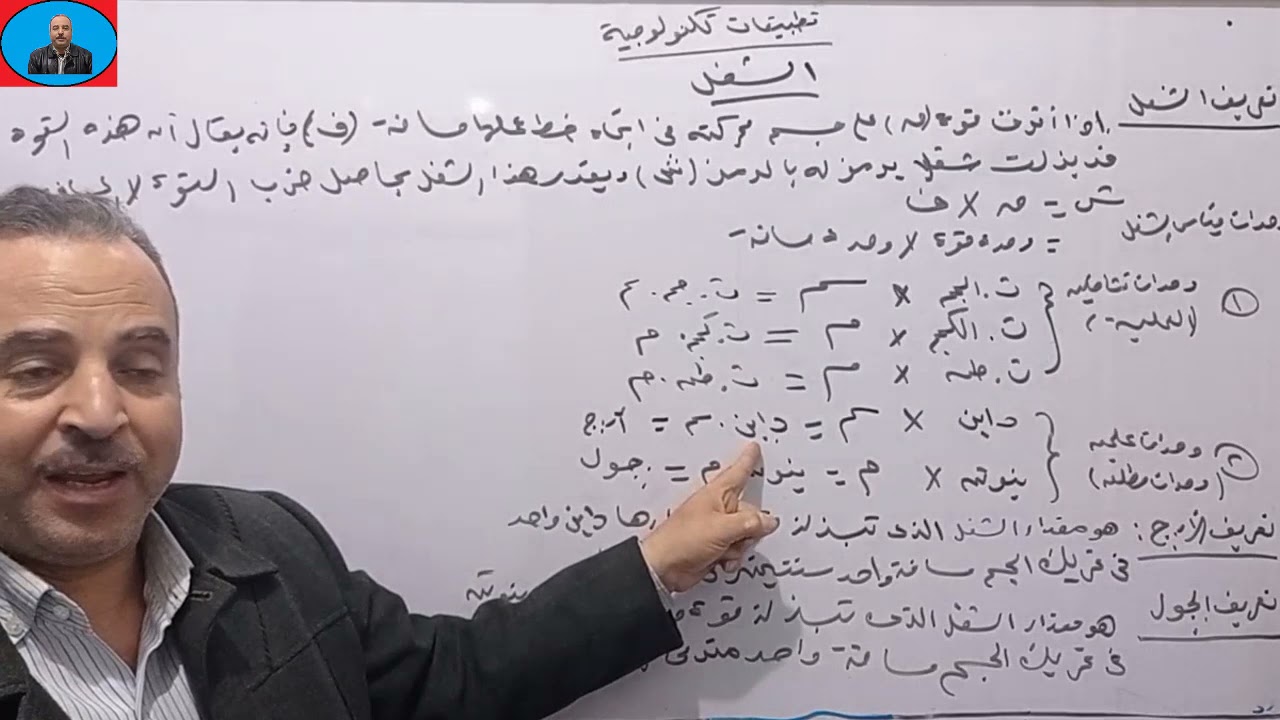 تطبيقات تكنولوجية
الشغل
تعريف الشغل
إذا أثرت قوة (ق) على جسم فحركته في اتجاه خط عملها مسافة (ف) فإنه يقال أن هذه القوة
قد بذلت شغلا يرمز له بالرمز (ش) ويقدر هذا الشغل بحاصل ضرب القوة
ش = ق × ف
وحدات قياس الشغل
= وحدة قوة × وحدة مسافة
① وحدات تثاقلية (العملية)
ث.الجم × سم = ث.جم.سم
ث.الكجم × م = ث.كجم.م
ث.طن × م = ث.طن.م
② وحدات علمية (وحدات مطلقة)
داين × سم = داين.سم = آرج
نيوتن × م = نيوتن م = جول
تعريف الأرج : هو مقدار الشغل الذى تبذله داين واحد
فى تحريك الجسم مسافة واحد سنتيمتر
تعريف الجول هو مقدار الشغل الذى تبذله قوة نيوتن
فى تحريك الجسم مسافة واحد متر